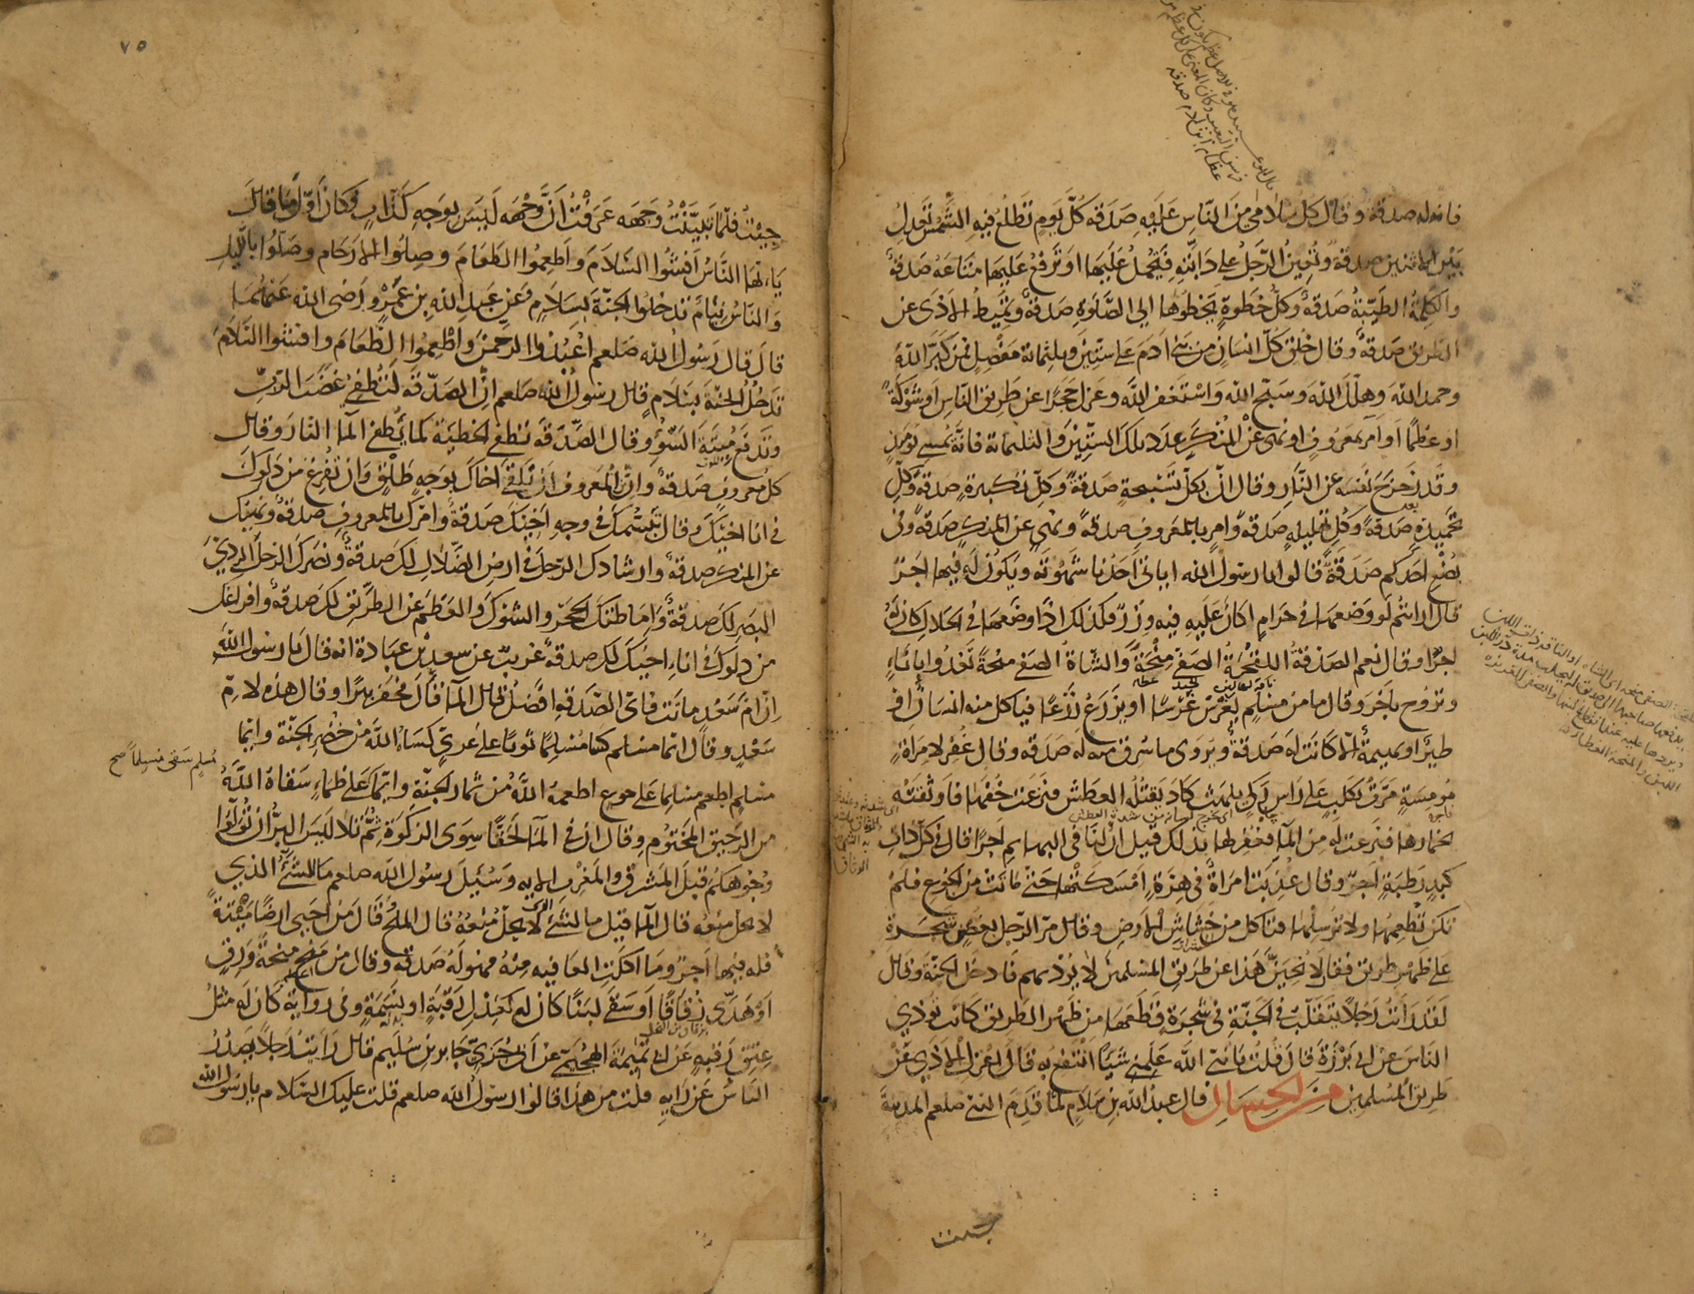 فانه له صدقة وقال كل سلامى من الناس عليه صدقة كل يوم تطلع فيه الشمس تعدل
بين الاثنين صدقة وتعين الرجل على دابته فيحمل عليها او ترفع عليها متاعه صدقة
والكلمة الطيبة صدقة وكل خطوة يخطوها الى الصلوة صدقة ويميط الاذى عن
الطريق صدقة وقال خلق كل انسان من بني ادم على ستين وثلثمائة مفصل فمن كبر الله
وحمد الله وهلل الله وسبح الله واستغفر الله وعزل حجرا عن طريق الناس او شوكة
او عظما او امر بمعروف او نهى عن المنكر عدد تلك الستين والثلثمائة فانه يمسي يومئذ
وقد زحزح نفسه عن النار وقال ان بكل تسبيحة صدقة وكل تكبيرة صدقة وكل
تحميدة صدقة وكل تهليلة صدقة وامر بالمعروف صدقة ونهي عن المنكر صدقة وفي
بضع احدكم صدقة قالوا يا رسول الله اياتي احدنا شهوته ويكون له فيها اجر
قال ارايتم لو وضعها في حرام اكان عليه فيه وزر فكذلك اذا وضعها في الحلال كان له
اجرا وقال نعم الصدقة اللقحة الصفي منحة والشاة الصفي منحة تغدو باناء
وتروح باخر وقال ما من مسلم يغرس غرسا او يزرع زرعا فياكل منه انسان او
طير او بهيمة الا كانت له صدقة ويروى ما سرق منه له صدقة وقال غفر لامراة
مومسة مرت بكلب على راس ركي يلهث كاد يقتله العطش فنزعت خفها فاوثقته
بخمارها فنزعت له من الماء فغفر لها بذلك قيل ان لنا في البهايم اجرا قال في كل ذات
كبد رطبة اجر وقال عذبت امراة في هرة امسكتها حتى ماتت من الجوع فلم
تكن تطعمها ولا ترسلها فتاكل من خشاش الارض وقال مر الرجل بغصن شجرة
على ظهر طريق فقال لانحين هذا عن طريق المسلمين لا يوذيهم فادخل الجنة وقال
لقد رايت رجلا يتقلب في الجنة في شجرة قطعها من ظهر الطريق كانت توذي
الناس عن ابي برزة قال قلت يا نبي الله علمني شيئا انتفع به قال اعزل الاذي عن
طريق المسلمين من الحسان قال عبد الله بن سلام لما قدم النبي صلعم المدينة
جئت
٧٥
جيت فلما تبينت وجهه عرفت ان وجهه ليس بوجه كذاب وكان اول ما قال
يا ايها الناس افشوا السلام واطعموا الطعام وصلوا الارحام وصلوا بالليل
والناس نيام تدخلوا الجنة بسلام وعن عبد الله بن عمرو رضى الله عنهما
قال قال رسول الله صلعم اعبدوا الرحمن واطعموا الطعام وافشوا السلام
تدخلوا الجنة بسلام قال رسول الله صلعم ان الصدقة لتطفئ غضب الرب
وتدفع ميتة السوء وقال الصدقة تطفئ الخطيئة كما يطفئ الماء النار وقال
كل معروف صدقة وان من المعروف ان تلقى اخاك بوجه طلق وان تفرغ من دلوك
في اناء اخيك وقال تبسمك في وجه اخيك صدقة وامرك بالمعروف صدقة ونهيك
عن المنكر صدقة وارشادك الرجل في ارض الضلال لك صدقة ونصرك الرجل الردي
البصر لك صدقة واماطتك الحجر والشوك والعظم عن الطريق لك صدقة وافراغك
من دلوك في اناء اخيك لك صدقة غريب عن سعد بن عبادة انه قال يا رسول الله
ان ام سعد ماتت فاي الصدقة افضل قال الماء قال فحفر بيرا وقال هذه لام
سعد وقال ايما مسلم كسا مسلما ثوبا على عري كساه الله من خضر الجنة وايما
مسلم اطعم مسلما على جوع اطعمه الله من ثمار الجنة وايما على ظماء سقاه الله
مسلم سقى مسلما صح
من الرحيق المختوم وقال ان في المال لحقا سوى الزكوة ثم تلا ليس البر ان تولوا
وجوهكم قبل المشرق والمغرب الاية وسئل رسول الله صلعم ما الشئ الذي
لا يحل منعه قال الماء قيل ما الشئ الذي لا يحل منعه قال الملح قال من احيى ارضا ميتة
فله فيها اجر وما اكلت العافية منه فهو له صدقة وقال من منح منحة ورق
او هدى زقاقا او سقى لبنا كان له كعدل رقبة او نسمة وفي رواية كان له مثل
عتق رقبة عن ابي تميمة الهجيمي عن ابي جري جابر بن سليم قال رايت رجلا يصدر
الناس عن رايه قلت من هذا قالوا رسول الله صلعم قلت عليك السلام يا رسول الله